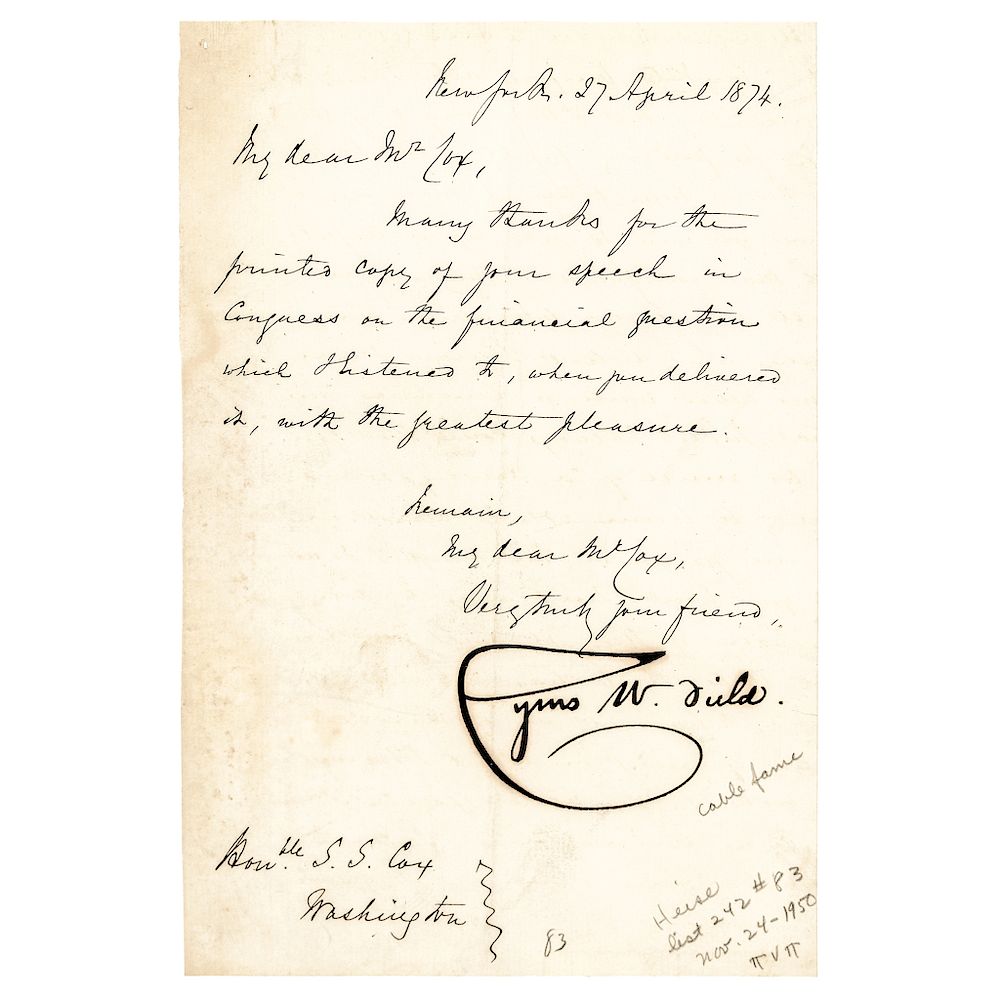 New York. 27 April 1874.
My dear Mr Cox,
Many thanks for the
printed copy of your speech in
Congress on the financial question
which I listened to, when you delivered
it, with the greatest pleasure.
Remain,
My dear Mr Cox,
Very truly your friend,
Cyrus W. Field.
cable fame
Honble. S. S. Cox
Washington
83
Heise
list 242 # 83
Nov. 24-1950
π v π